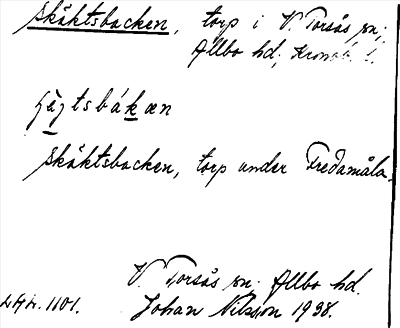 Skäktsbacken, torp i V. Torsås sn;
Allbo hd; Kronob. l.
Skäktsbacken, torp under Fredamåla.
V. Torsås sn; Allbo hd.
Johan Nilsson 1938.